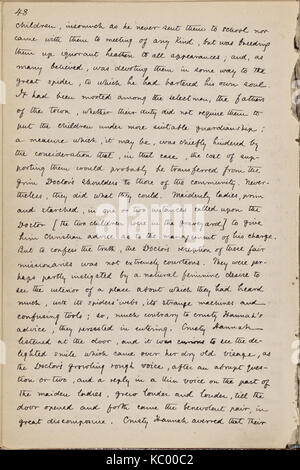 43
children, insomuch as he never sent them to school nor
came with them to meeting of any kind, but was breeding
them up ignorant heathen to all appearances, and, as
many believed, was devoting them in some way to the
great spider, to which he had bartered his own soul.
It had been mooted among the selectmen, the fathers
of the town, whether their duty did not require them to
put the children under more suitable guardianship;
a measure which, it may be, was chiefly hindered by
the consideration that, in that case, the cost of sup-
porting them would probably be transferred from the
grim Doctor's shoulders to those of the community. Never-
theless, they did what they could. Maidenly ladies, prim
and starched, in one or two instances called upon the
Doctor [the two children were in the graveyard] to give
him Christian advice as to the management of his charge.
But to confess the truth, the Doctor's reception of these fair
missionaries was not extremely courteous. They were per-
haps partly instigated by a natural feminine desire to
see the interior of a place about which they had heard
much, with its spiders' webs, its strange machines and
confusing tools; so, much contrary to crusty Hannah's
advice, they persisted in entering. Crusty Hannah
listened at the door, and it was curious to see the de-
lighted smile which came over her dry old visage, as
the Doctor's growling rough voice, after an abrupt ques-
tion or two, and a reply in a thin voice on the part of
the maiden ladies, grew louder and louder, till the
door opened and forth came the benevolent pair, in
great discomposure. Crusty Hannah averred that their
alamy
Image ID: KC00C2
www.alamy.com